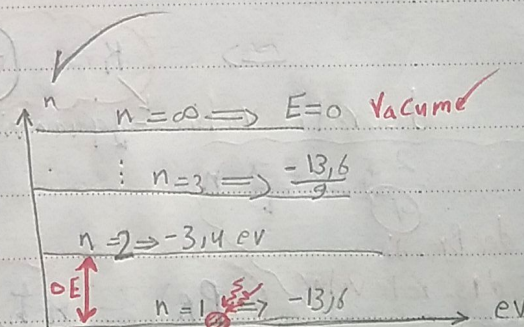 n
n = ∞ ⇒ E=0 Vacume
⋮ n=3 ⇒ -13,6/9
n=2 ⇒ -3,4 ev
ΔE
n=1 ⇒ -13,6
ev